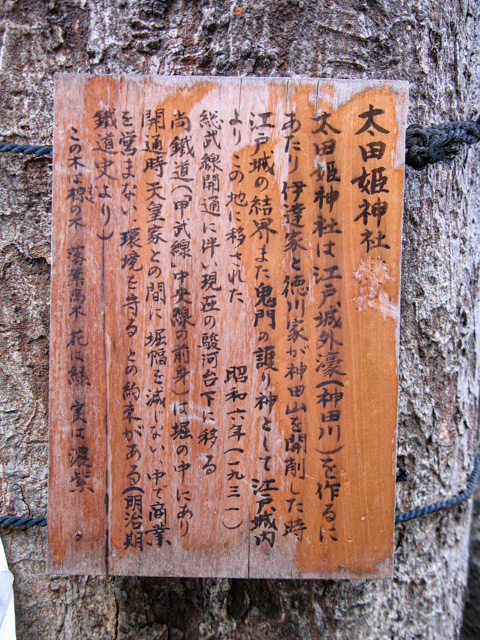 太田姫神社
太田姫神社は江戸城外濠(神田川)を作るに
あたり伊達家と徳川家が神田山を開削した時
江戸城の結界また鬼門の護り神として江戸城内
よりこの地に移された
昭和六年(一九三一)
総武線開通に伴い現在の駿河台下に移る
尚鐵道(甲武線、中央線の前身)は堀の中にあり
開通時天皇家との間に堀幅を減じない、中で商業
を営まない、環境を守る との約束がある(明治期
鐵道史より)
この木は椋の木 落葉高木 花は緑 実は濃紫